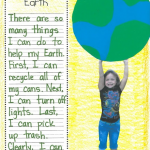 Earth
There are so
many things
I can do to
help my Earth.
First, I can
recycle all of
my cans. Next,
I can turn off
lights. Last,
I can pick
up trash.
Clearly, I can